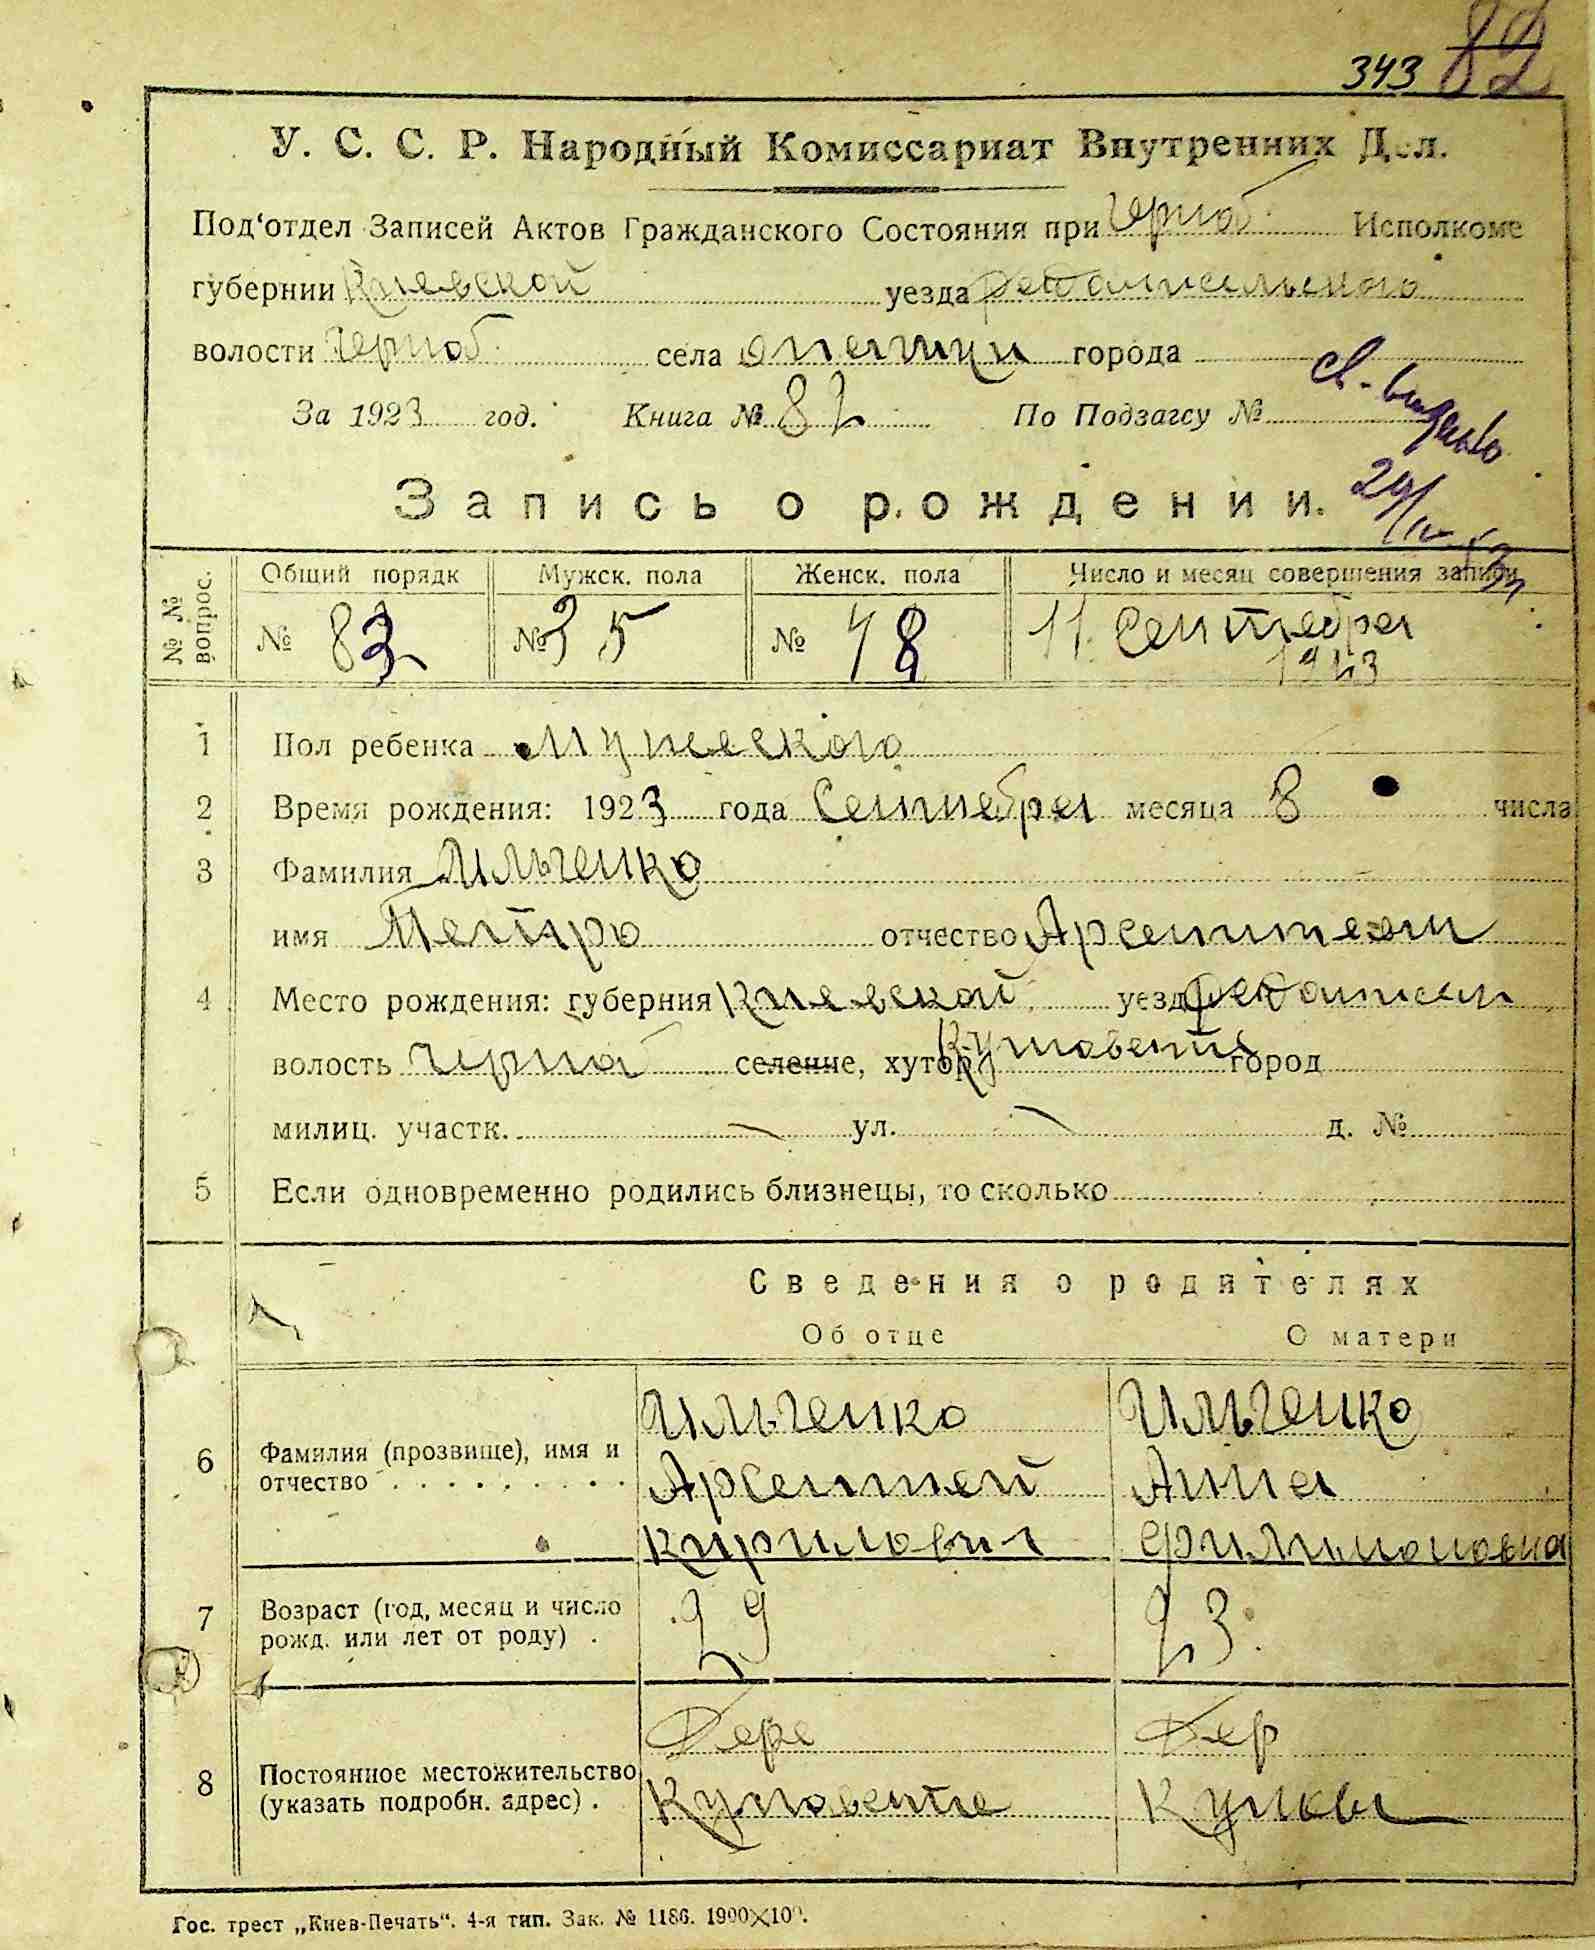 343 82
У. С. С. Р. Народный Комиссариат Внутренних Дел.
Под'отдел Записей Актов Гражданского Состояния при Черноб. Исполкоме
губернии Киевской уезда
волости Черноб. села города
За 1923 год. Книга № 82 По Подзагсу №
Запись о рождении.
№№ вопрос. Общий порядк Мужск. пола Женск. пола Число и месяц совершения записи
№ 83 № 35 № 48 11. Сентебря
1923
1 Пол ребенка Мужеского
2 Время рождения: 1923 года Сентебря месяца 8 числа
3 Фамилия Ильченко
имя Петро отчество
4 Место рождения: губерния Киевской уезд
волость Черноб селение, хутор Куповате город
милиц. участк. — ул. — д. №
5 Если одновременно родились близнецы, то сколько
Сведения о родителях
Об отце О матери
6 Фамилия (прозвище), имя и отчество
Ильченко Ильченко
Арсентей Анна
Кирилович Филимоновна
7 Возраст (год, месяц и число рожд. или лет от роду) . 29 23.
8 Постоянное местожительство (указать подробн. адрес) .
Дере Дер
Куповате
Гос. трест „Киев-Печать“. 4-я тип. Зак. № 1186. 1900×100.